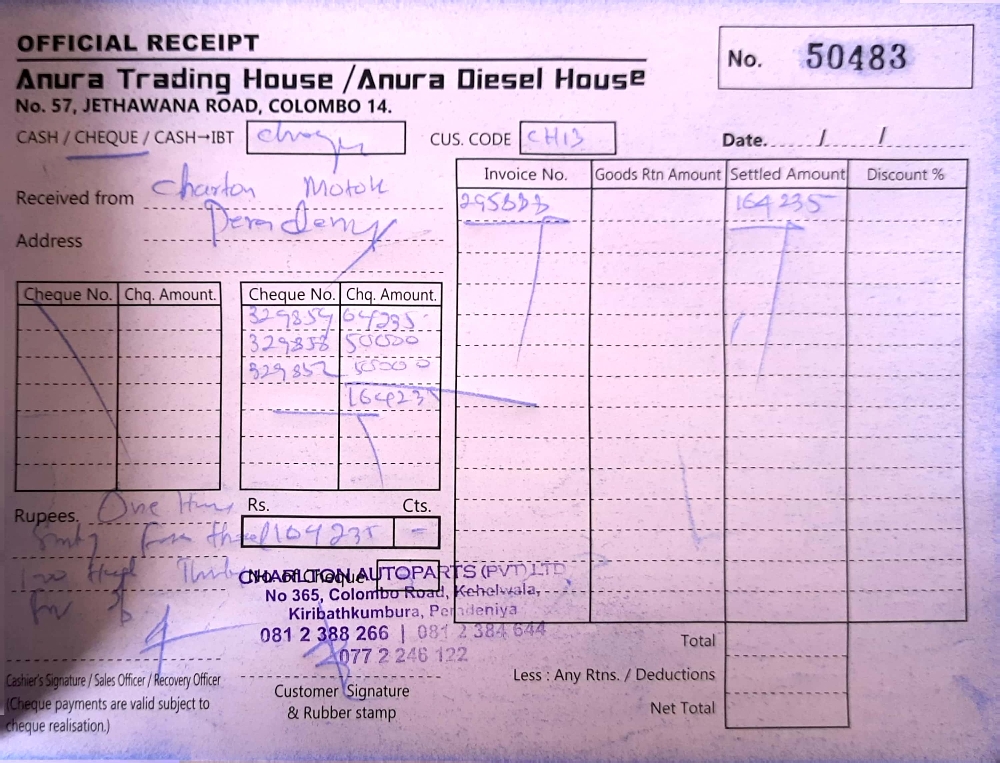 OFFICIAL RECEIPT
No. 50483
Anura Trading House /Anura Diesel House
No. 57, JETHAWANA ROAD, COLOMBO 14.
CASH / CHEQUE / CASH→IBT
CUS. CODE CH13
Date. / /
Received from Charton Motok
Address
Invoice No. Goods Rtn Amount Settled Amount Discount %
164235
Cheque No. Chq. Amount. Cheque No. Chq. Amount.
329854 64235
329853 50000
329852 50000
164235
Rupees. One
Rs. Cts.
164235 -
No of Cheque
CHARLTON AUTOPARTS (PVT) LTD
No 365, Colombo Road, Kehelwala,
Kiribathkumbura, Peradeniya
081 2 388 266 | 081 2 384 644
077 2 246 122
Cashier's Signature / Sales Officer / Recovery Officer
(Cheque payments are valid subject to
cheque realisation.)
Customer Signature
& Rubber stamp
Total
Less : Any Rtns. / Deductions
Net Total